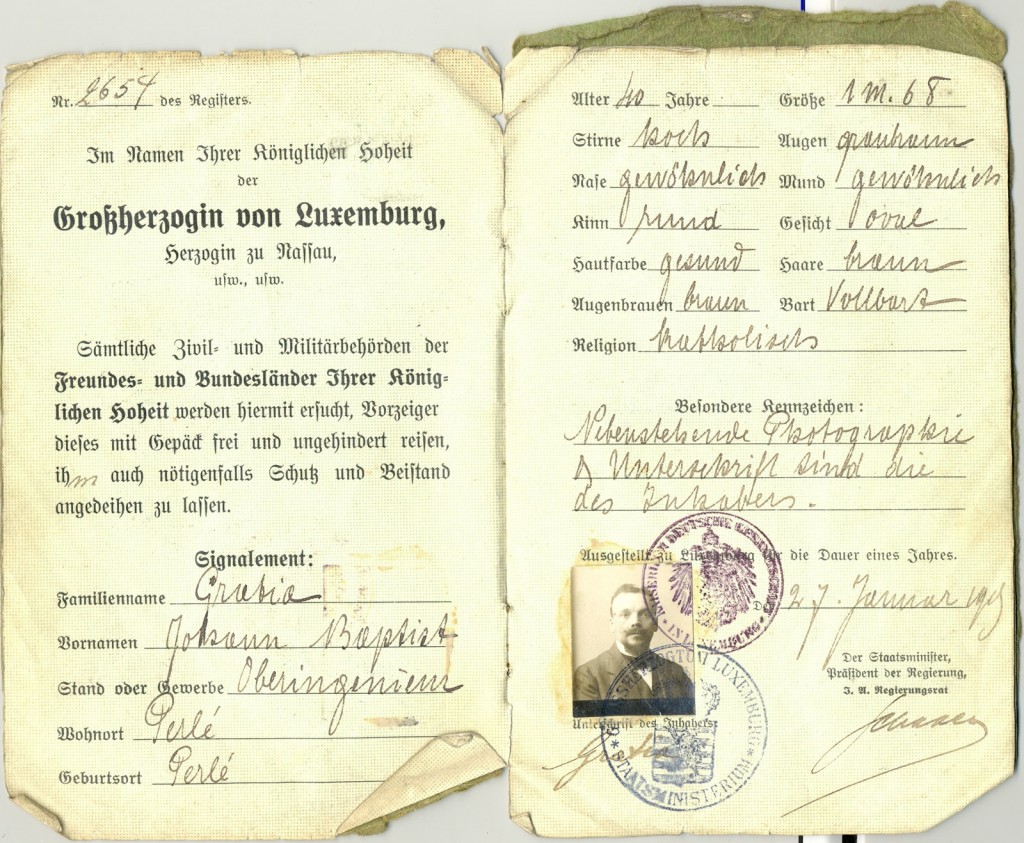 Nr. 2654 des Registers.
Im Namen Ihrer Königlichen Hoheit
der
Großherzogin von Luxemburg,
Herzogin zu Nassau,
usw., usw.
Sämtliche Zivil- und Militärbehörden der
Freundes- und Bundesländer Ihrer König-
lichen Hoheit werden hiermit ersucht, Vorzeiger
dieses mit Gepäck frei und ungehindert reisen,
ihm auch nötigenfalls Schutz und Beistand
angedeihen zu lassen.
Signalement:
Familienname Gratia
Vornamen Johann Baptist
Stand oder Gewerbe Oberingenieur
Wohnort Perlé
Geburtsort Perlé
Alter 40 Jahre Größe 1 m. 68
Stirne hoch Augen graubraun
Nase gewöhnlich Mund gewöhnlich
Kinn rund Gesicht oval
Hautfarbe gesund Haare braun
Augenbrauen braun Bart Vollbart
Religion katholisch
Besondere Kennzeichen:
Nebenstehende Photographie
& Unterschrift sind die
des Inhabers.
Ausgestellt zu Luxemburg für die Dauer eines Jahres.
27. Januar 1915
KAISERLICH DEUTSCHE GESANDTSCHAFT
IN LUXEMBURG
Der Staatsminister,
Präsident der Regierung,
J. A. Regierungsrat
Unterschrift des Inhabers:
Gratia
GROSSHERZOGTUM LUXEMBURG
* STAATSMINISTERIUM *